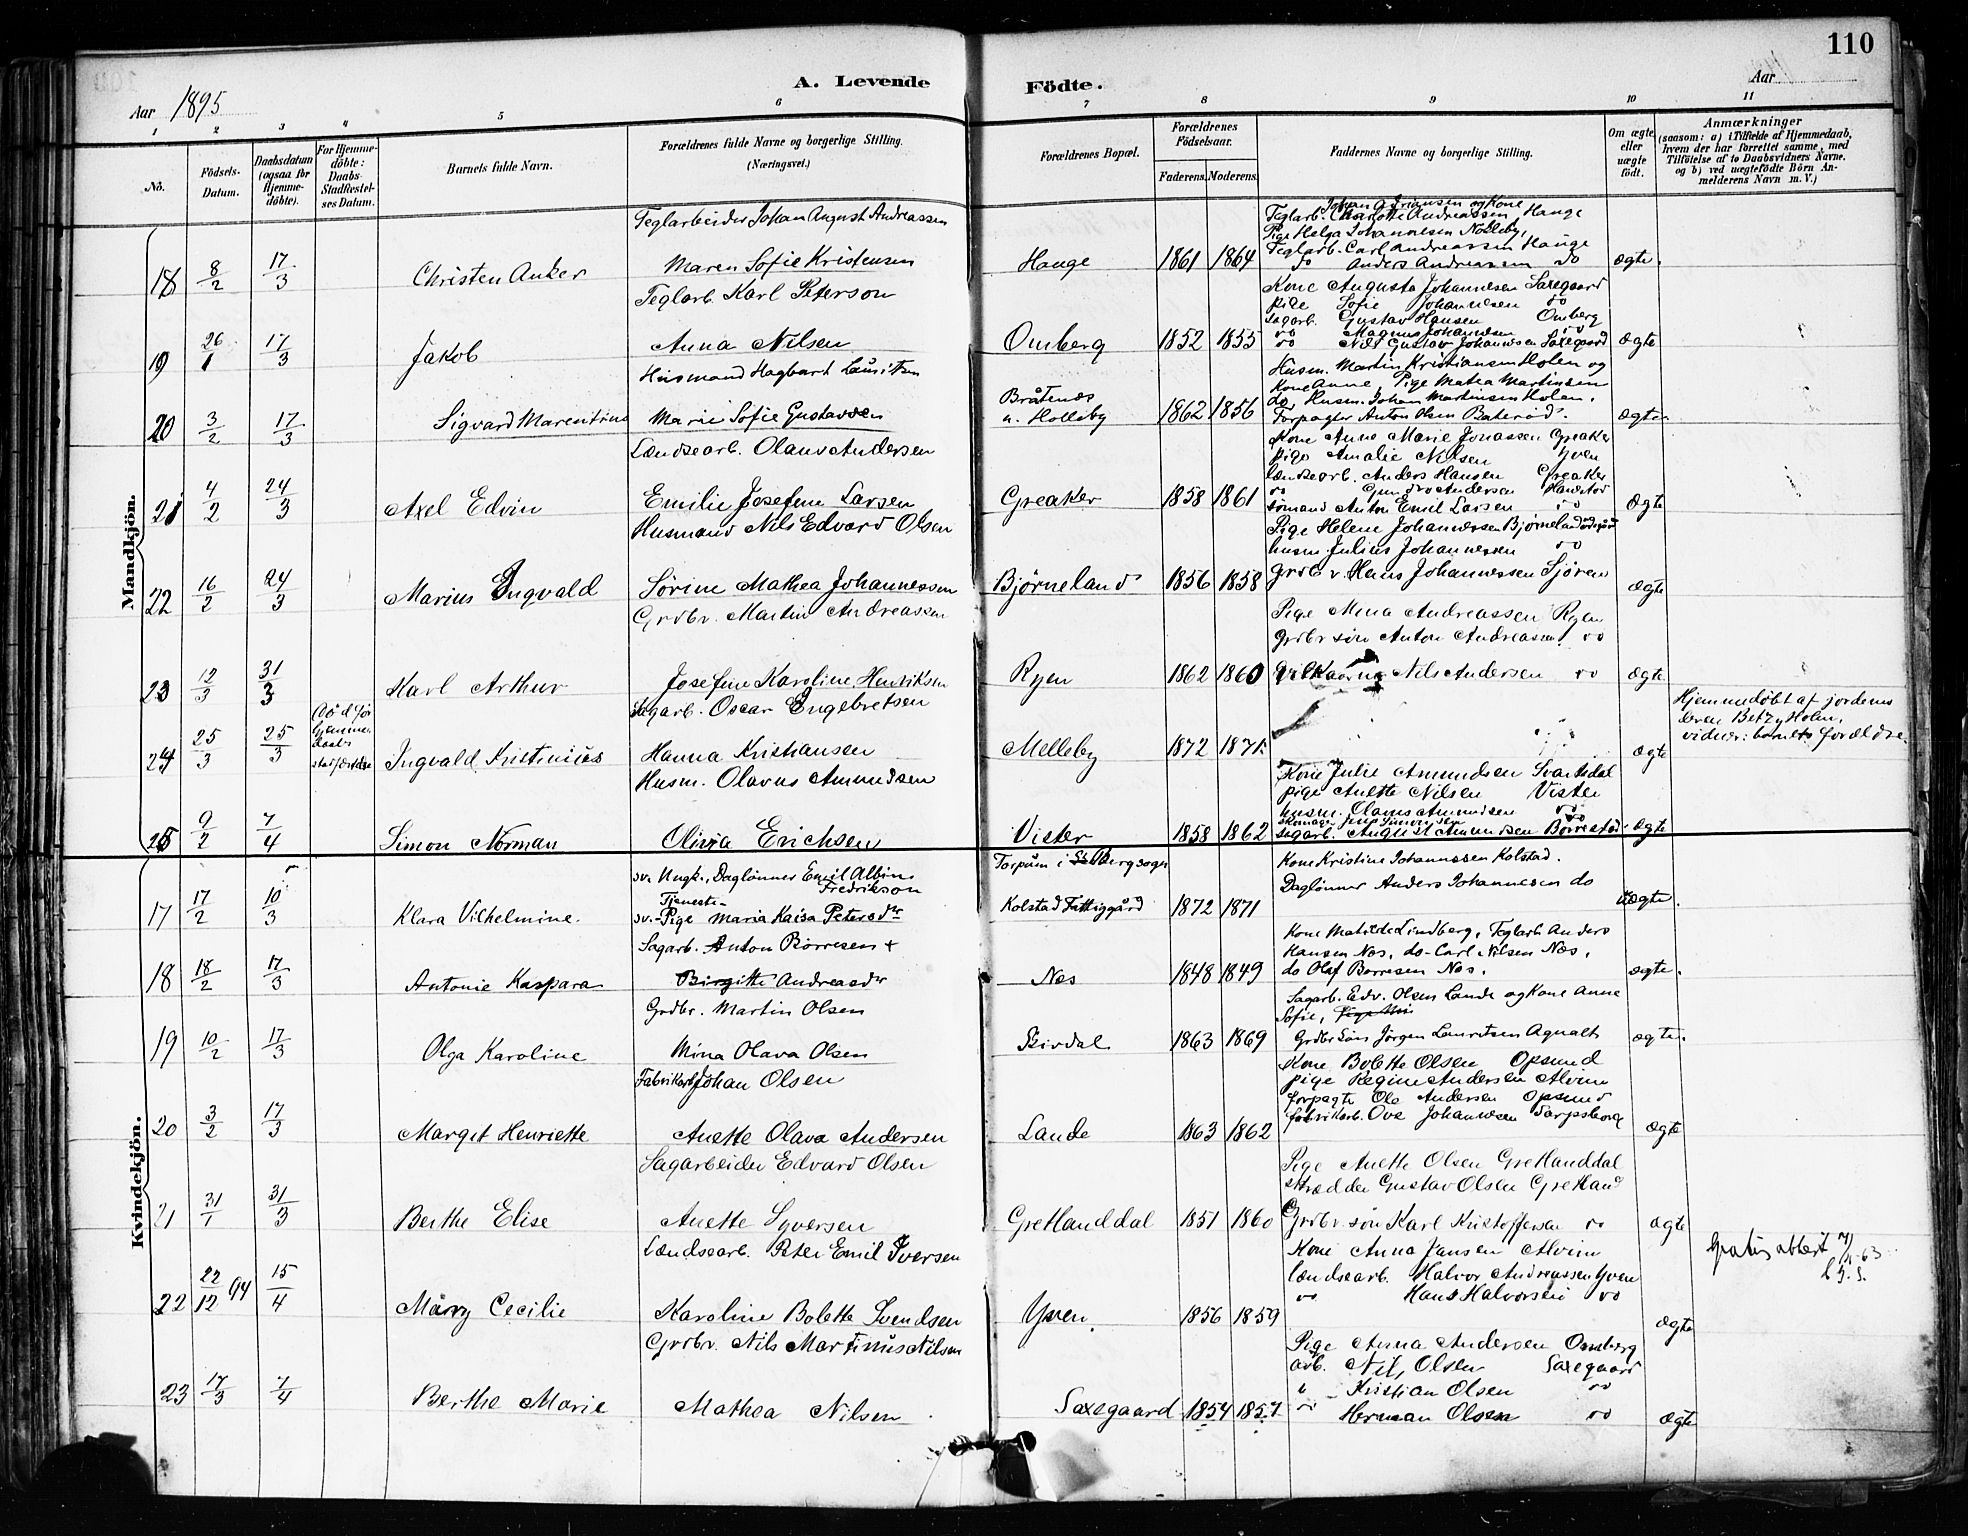 110
A. Levende Födte.
Aar 1895
Aar
1 2 3 4 5 6 7 8 9 10 11
No.
Födsels-Datum.
Daabsdatum (ogsaa for Hjemmedöbte).
For Hjemmedöbte: Daabs-Stadfæstelses Datum.
Barnets fulde Navn.
Forældrenes fulde Navne og borgerlige Stilling. (Næringsvei.)
Forældrenes Bopæl.
Forældrenes Födselsaar.
Faderens. Moderens.
Faddernes Navne og borgerlige Stilling.
Om ægte eller uægte födt.
Anmærkninger
(saasom: a) i Tilfælde af Hjemmedaab, hvem der har forrettet samme, med Tilföielse af to Daabsvidners Navne. og b) ved uægtefödte Börn Anmelderens Navn m. V.)
Mandkjön.
18 8/2 17/3 Christen Anker
Teglarbeider Johan August Andreassen
Maren Sofie Kristensen
Hauge 1861 1864
Teglarb. Charlotte Andreassen, Hauge
Pige Helga Johannesen Nolleby,
Teglarb. Carl Andreassen Hauge
do Anders Andreassen do
ægte.
19 26/1 17/3 Jakob
Teglarb. Karl Peterson
Anna Nilsen
Omberg 1852 1855
Kone Augusta Johannesen Saxegaard
pige Sofie Johannesen do
Sagarb. Gustav Hansen Omberg
do Magnus Johannesen do
do Nils Gustav Johannesen Saxegaard
ægte
20 3/2 17/3 Sigvard Marentius
Husmand Hagbart Lauritsen
Marie Sofie Gustavsen
Bråtenæs
u. Holleby 1862 1856
Husm. Martin Kristiansen Holen og
Kone Anne, Pige Matea Martinsen
do, Husm. Johan Martinsen Holen.
Forpagter Anton Olsen Baterød.
ægte.
21 4/2 24/3 Axel Edvin
Lændsearb. Olaus Andersen
Emilie Josefine Larsen
Greaker 1858 1861
Kone Anne Marie Jonassen Greaker
pige Amalie Nilsen Yven
lændsearb. Anders Hansen Greaker
sömand Anton Emil Larsen do
ægte
22 16/2 24/3 Marius Ingvald
Husmand Nils Edvard Olsen
Sørine Mathea Johannessen
Bjørneland 1856 1858
Pige Helene Johannessen Bjørneland
husm. Julius Johannessen do
grdbr. Hans Johannessen Sjøren
ægte
23 12/3 31/3 Karl Arthur
Grdbr. Martin Andreassen
Josefine Karoline Henriksen
Ryen 1862 1860
Pige Mina Andreassen Ryen
Grdbr søn Anton Andreassen do
Nils Andersen do
ægte
24 25/3 25/3 Død før
hjemme-
daabs
stadfæstelse
Ingvald Kristinius
Sagarb. Oscar Engebretsen
Hanna Kristiansen
Melleby 1872 1871
ægte
Hjemmedøbt af jordemo
deren Betzy Holm.
vidner: barnets forældre.
25 9/2 7/4 Simon Norman
Husm. Olavus Amundsen
Olivia Erichsen
Vister 1858 1862
Kone Julie Amundsen Svartsdal
pige Anette Nilsen Vister
husm. Olaus Amundsen do
sagarb. August Amundsen Borrestad
ægte
Kvindekjön.
17 17/2 10/3 Klara Vilhelmine.
sv. Ungk., Daglønner Emil Albin
Fredrikson
Tjeneste-
sv.-Pige Maria Kaisa Petersdtr
Torpum i Bergsogn
Kolstad Fattiggård 1872 1871
Kone Kristine Johannesen Kolstad.
Daglønner Anders Johannesen do
uægte.
18 18/2 17/3 Antonie Kaspara
Sagarb. Anton Børresen +
Birgitte Andreasdtr
Næs 1848 1849
Kone Matilde Lindberg, Teglarb Anders
Hansen Næs, do- Carl Nilsen Næs,
do Olaf Børresen Næs.
ægte.
19 10/2 17/3 Olga Karoline
Grdbr. Martin Olsen
Mina Olava Olsen
1863 1869
Sagarb. Edv. Olsen Lande og Kone Anne
Sofie,
Grdbr Søn Jørgen Lauritsen Agnalt
ægte.
20 3/2 17/3 Margit Henriette
Fabrikarb Johan Olsen
Anette Olava Andersen
Lande 1863 1862
Kone Bolette Olsen Opsund
pige Regine Andersen Alvim
forpagte Ole Andersen Opsund
fabrikarb. Ove Johannesen Sarpsborg
ægte
21 31/1 31/3 Berthe Elise
Sagarbeider Edvard Olsen
Anette Syversen
Gretlanddal 1851 1860
Pige Anette Olsen Gretlanddal
skrædder Gustav Olsen Gretland
Grdbr. søn Karl Kristoffersen do
ægte
22 22/12 94 15/4 Mary Cecilie
Lændsearb. Peter Emil Iversen
Karoline Bolette Svendsen
Yven 1856 1859
Kone Anna Jansen Alvim
lændsearb. Halvor Andreassen Yven
do Hans Halvorsen do
ægte
Gratis attest
23 17/3 7/4 Berthe Marie
Grdbr. Nils Martinus Nilsen
Mathea Nilsen
Saxegaard 1854 1857
Pige Anna Andersen Omberg
arb. Nils Olsen Saxegaard
" Kristian Olsen do
do Herman Olsen do
ægte